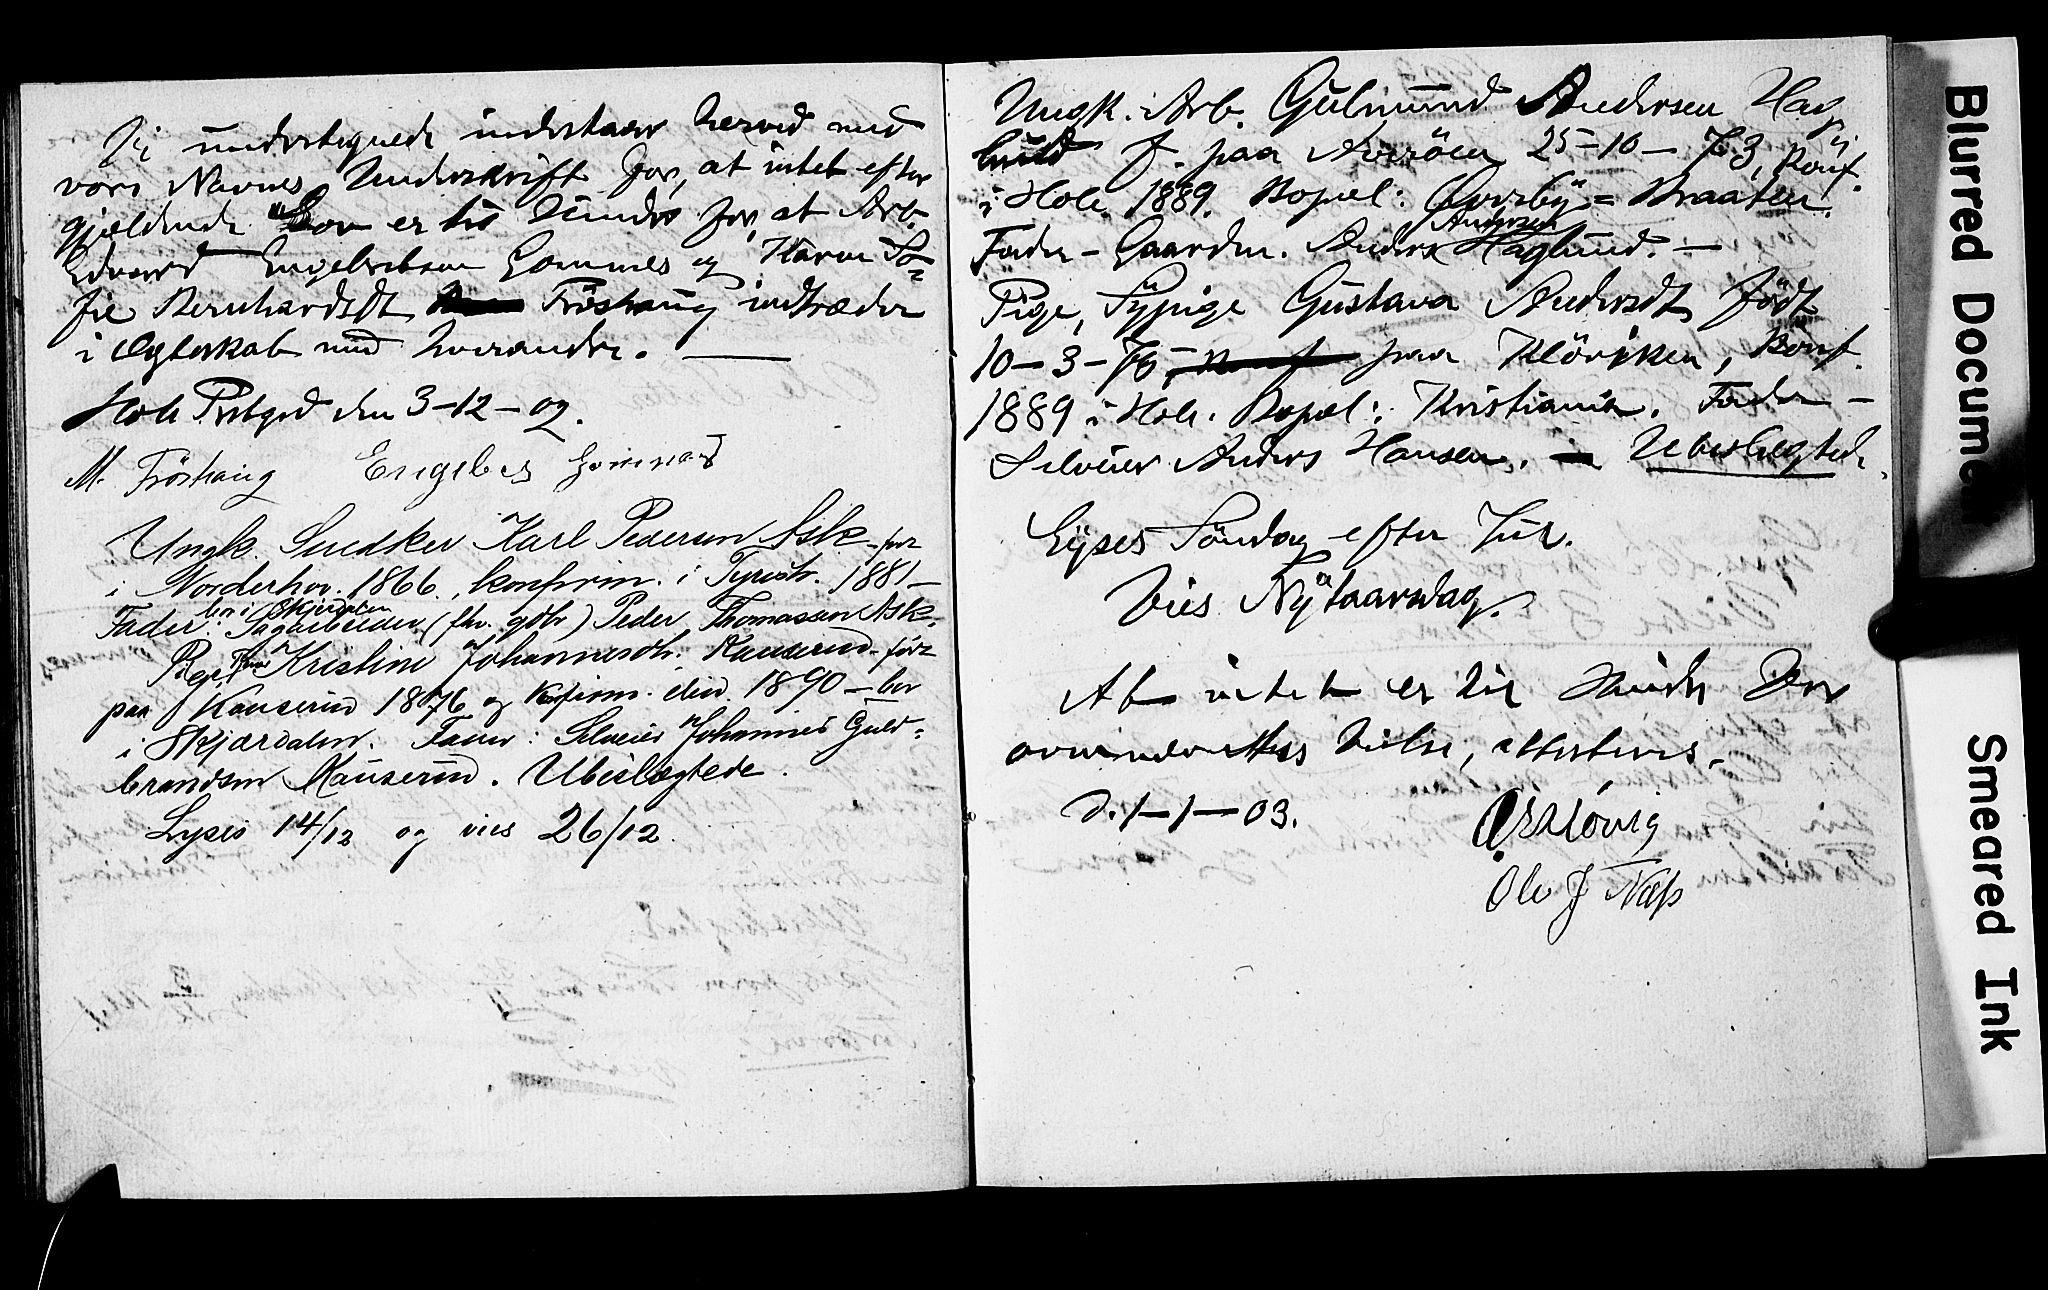 Vi undertegnede indestaar herved med
vore Navnes Underskrift for, at intet efter
gjældende Lov er til Hinder for, at Arb.
Edvard Engebretsen Gomnes og Karen So-
fie Bernhardsdt Fröshaug indtræder
i Ægteskab med hverandre.
Hole Prstgrd den 3-12-02.
M. Fröshaug Engebret Gomnes
Ungk. Snedker Karl Pedersen Ask - født
i Norderhov 1866, konfirm. i Tyristr. 1881 -
bor i Skjærdalen
Fader: Sagarbeider (fhv. gdbr) Peder Thomassen Ask.
Pige Kristine Johannesdt. - født
paa 1876 og konfirm. 1890 - bor
i Skjærdalen. Fader: Selveier Johannes Guld-
brandsen. Ubeslægtede.
Lyses 14/12 og vies 26/12.
Ungk. Arb. Gulmund Andersen Hag-
lund f. paa 25-10-73, Konf.
i Hole 1889. Bopæl: Braaten.
Andersen
Fader - Gaardm. Anders Haglund. -
Pige, Sypige Gustava Andersdt født
10-3-76 - paa Klöviken, Konf.
1889 i Hole. Bopæl: Kristiania. Fader -
Selveier Anders Hansen. - Ubeslægtede.
Lyses Söndag efter Jul.
Vies Nytaarsdag.
At intet er til Hinder for
ovennævntes Vielse, attesteres.
d. 1-1-03.
Klövig
Ole J Næss
Blurred Document
Smeared Ink